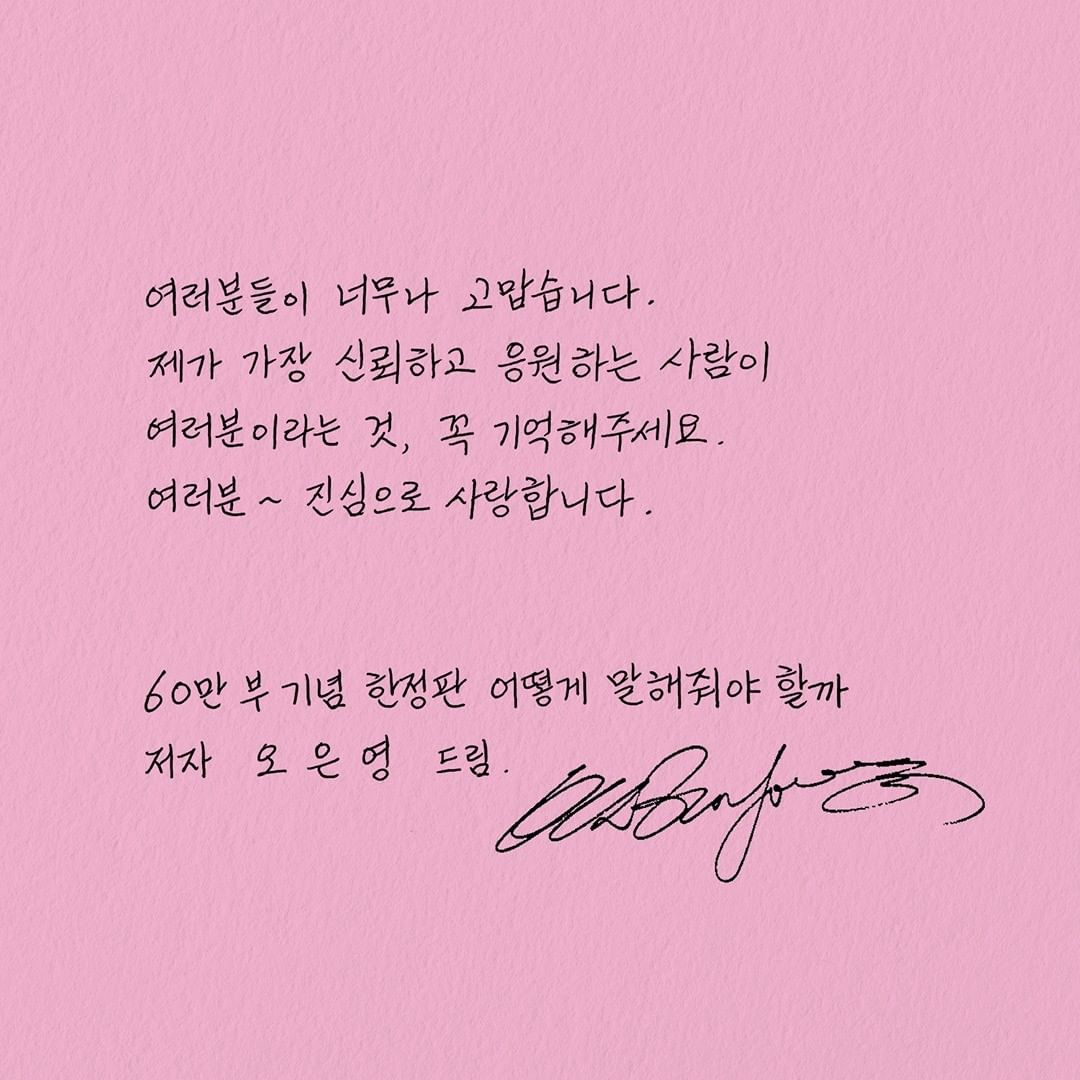 여러분들이 너무나 고맙습니다.
제가 가장 신뢰하고 응원하는 사람이
여러분이라는 것, 꼭 기억해주세요.
여러분 ~ 진심으로 사랑합니다.
60만 부 기념 한정판 어떻게 말해줘야 할까
저자 오 은 영 드림.